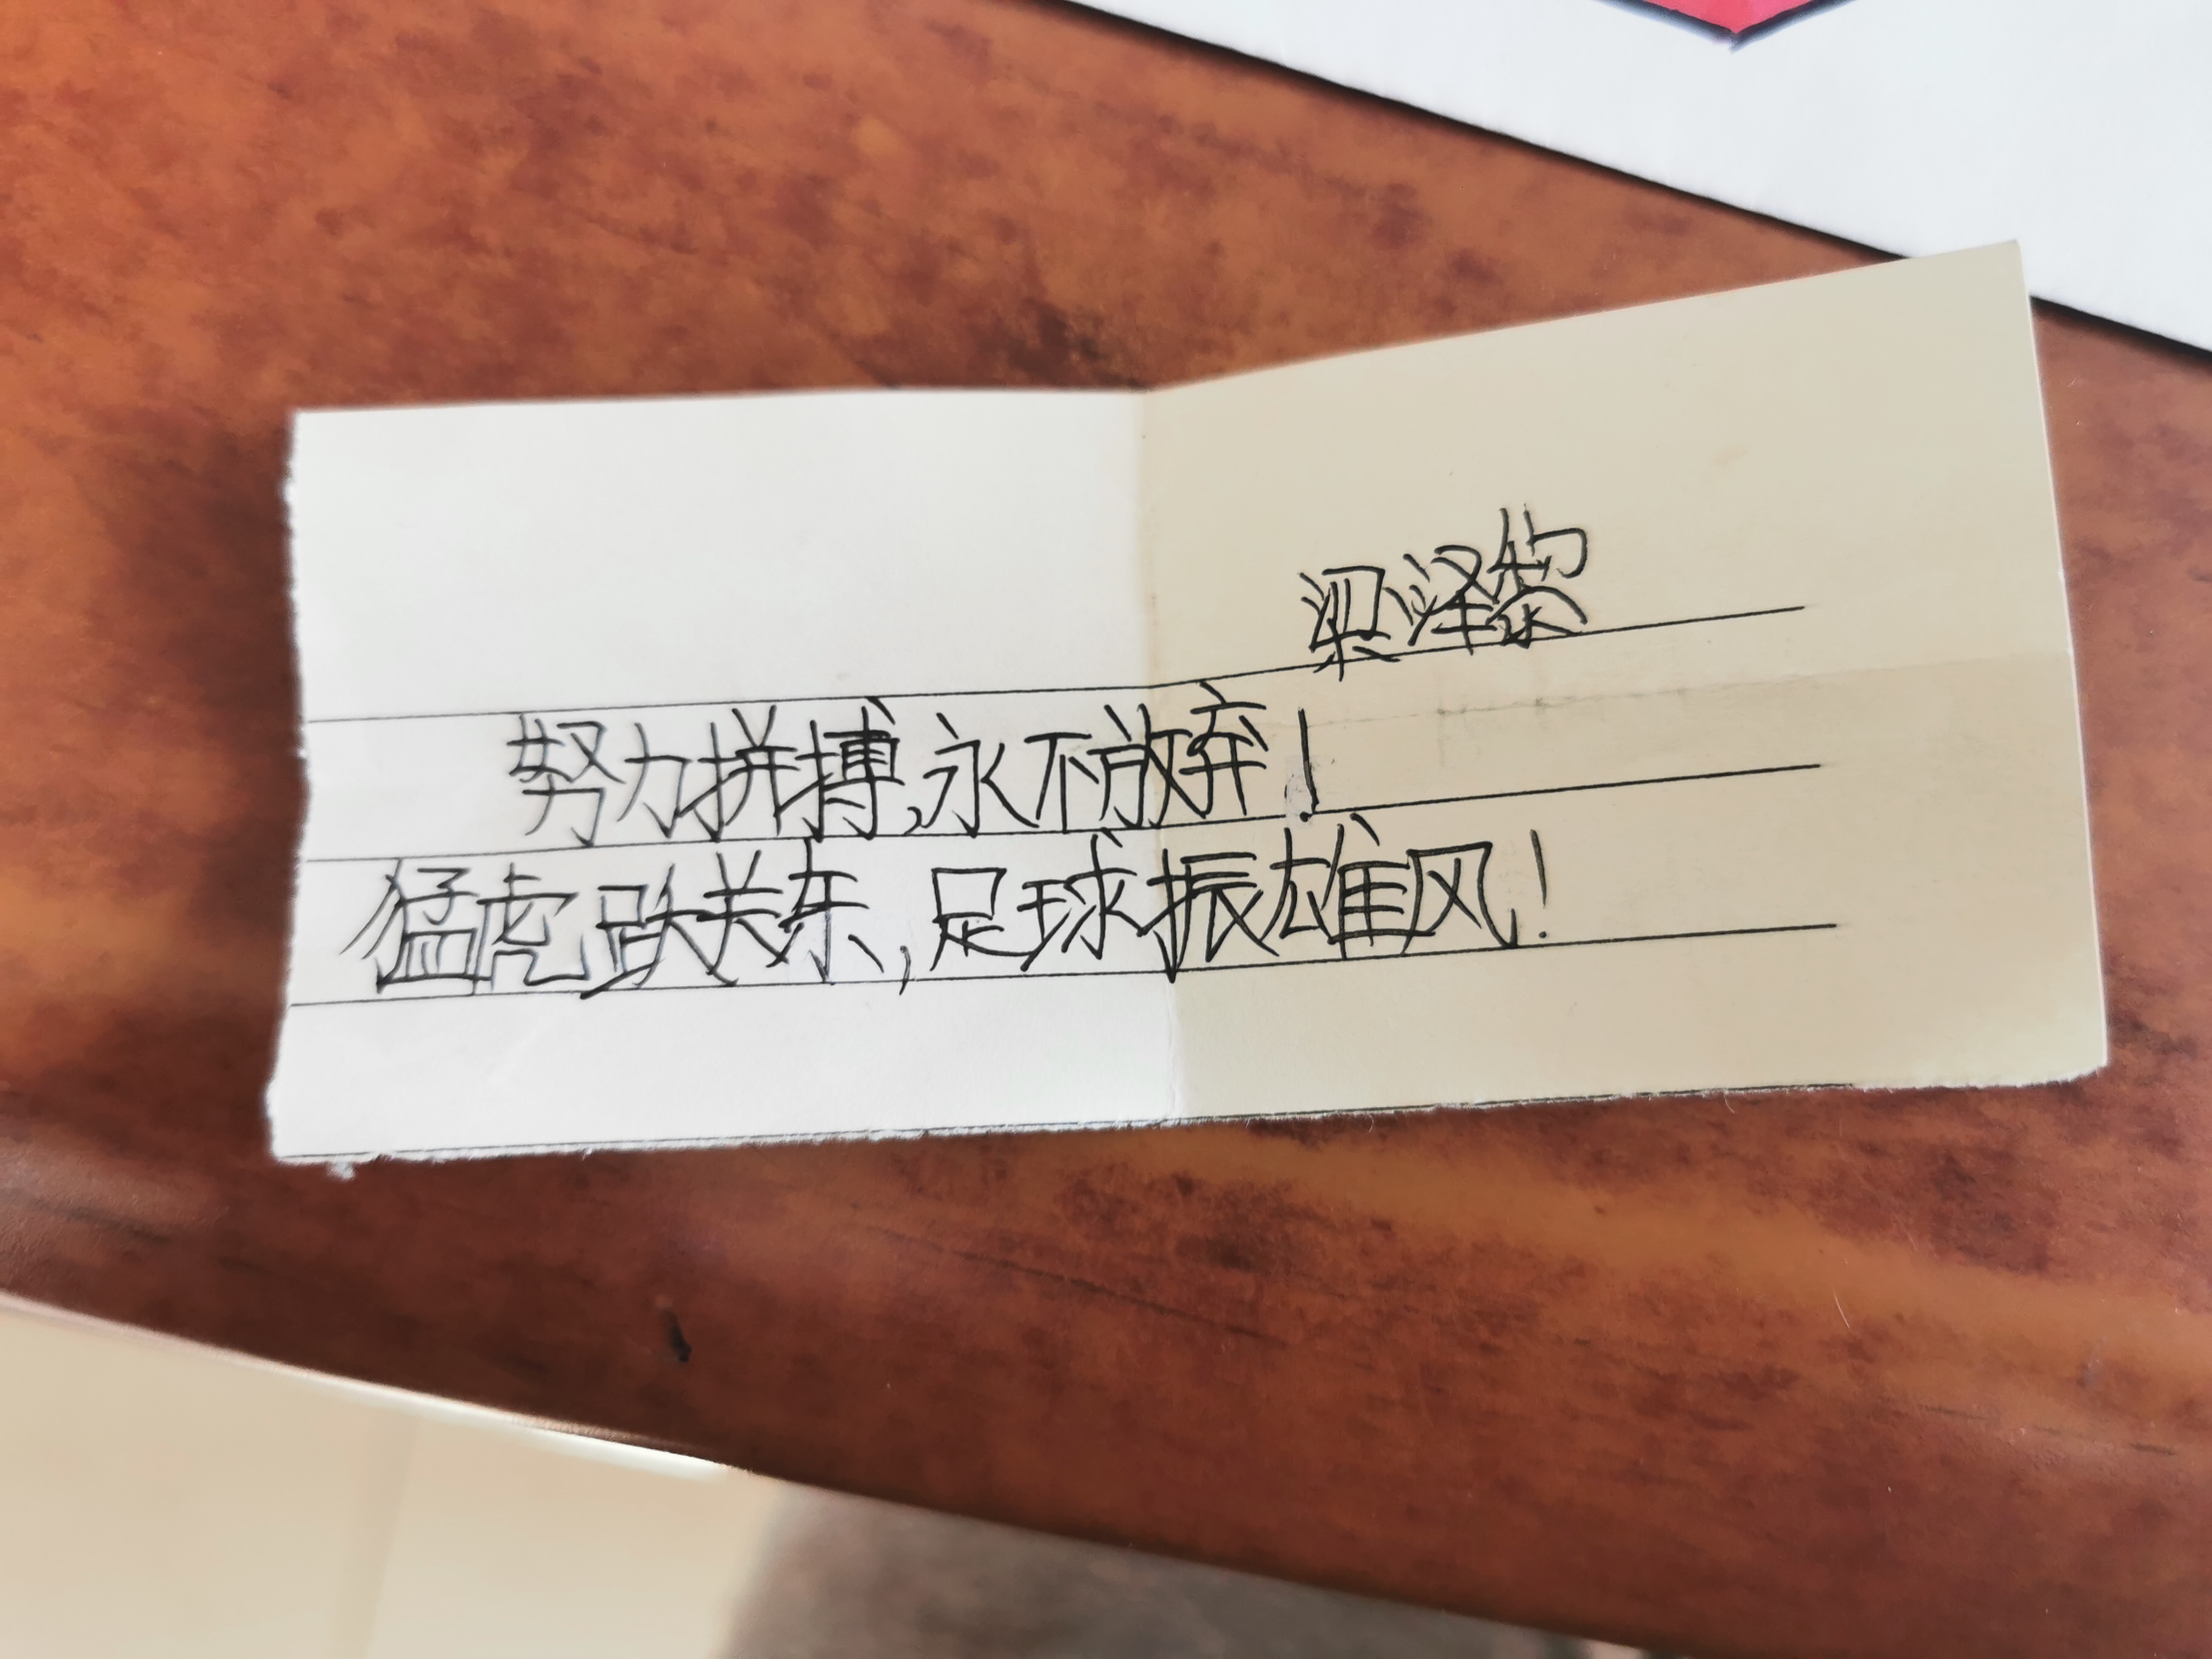 梁泽黎
努力拼搏,永不放弃!
猛虎跃关东,足球振雄风!